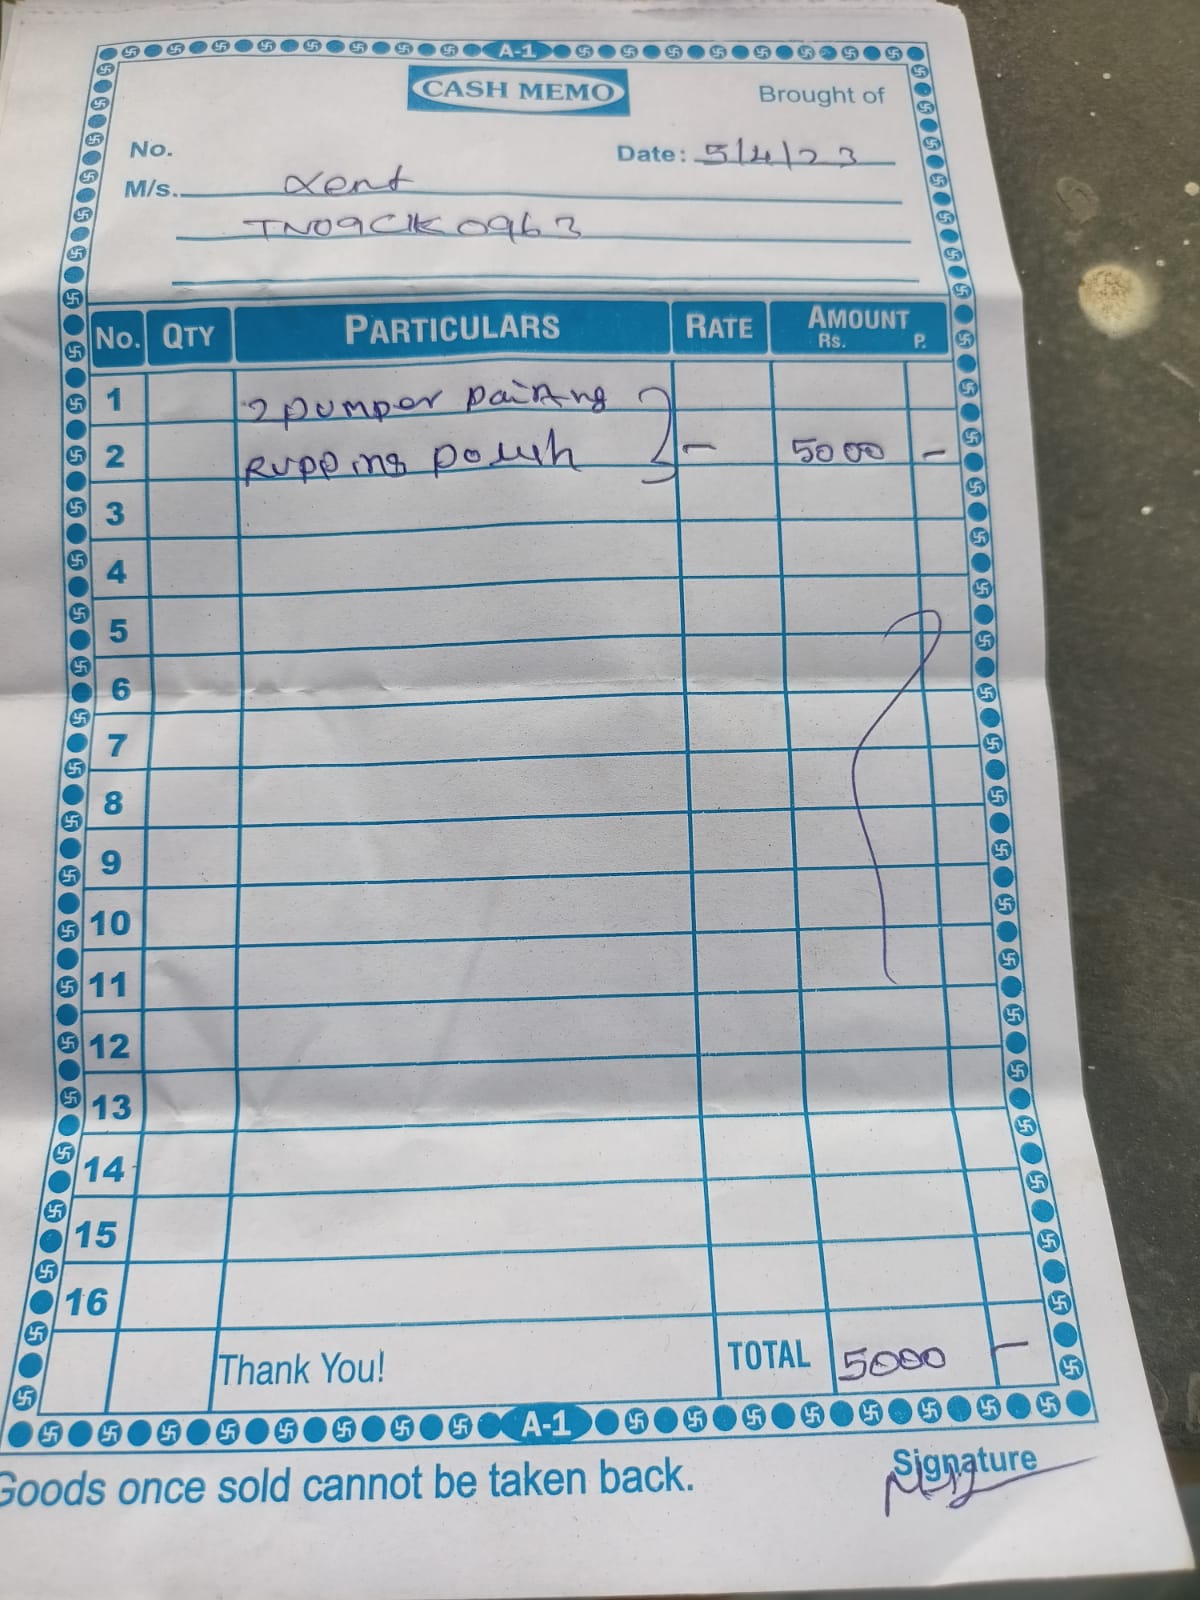 A-1
CASH MEMO
Brought of
No.
Date: 5/4/23
M/s. Xent
TN09CK0963
No. QTY PARTICULARS RATE AMOUNT
Rs. P.
1 2 pumper painting
2 Rupping polish - 5000 -
3
4
5
6
7
8
9
10
11
12
13
14
15
16
Thank You! TOTAL 5000 -
A-1
Goods once sold cannot be taken back.
Signature